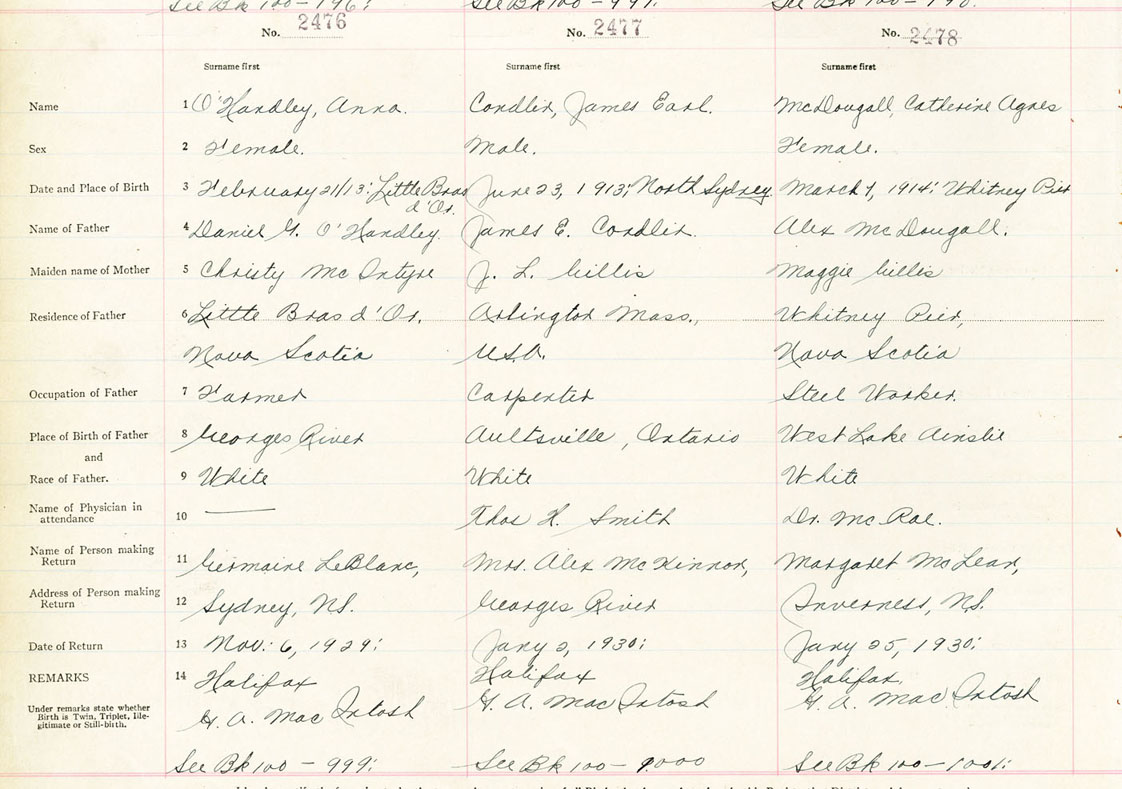 See Bk 100 - 996: See Bk 100 - 997. See Bk 100 - 998.
No. 2476 No. 2477 No. 2478
Surname first Surname first Surname first
Name 1 O'Handley, Anna. Condlin, James Earl. McDougall, Catherine Agnes
Sex 2 Female. Male. Female.
Date and Place of Birth 3 February 21/13: Little Bras June 23, 1913; North Sydney March 7, 1914: Whitney Pier
d'Or.
Name of Father 4 Daniel G. O'Handley. James E. Condlin. Alex McDougall.
Maiden name of Mother 5 Christy McIntyre J. L. Gillis Maggie Gillis
Residence of Father 6 Little Bras d'Or. Arlington Mass., Whitney Pier,
Nova Scotia U.S.A. Nova Scotia
Occupation of Father 7 Farmer Carpenter Steel Worker.
Place of Birth of Father 8 Georges River Aultsville, Ontario West Lake Ainslie
and
Race of Father. 9 White White White
Name of Physician in
attendance 10 — Thos H. Smith Dr. McRae.
Name of Person making
Return 11 Germaine LeBlanc, Mrs. Alex McKinnon, Margaret McLean,
Address of Person making
Return 12 Sydney, N.S. Georges River Inverness, N.S.
Date of Return 13 Nov: 6, 1929: Jany 2, 1930: Jany 25, 1930:
REMARKS 14 Halifax Halifax Halifax
Under remarks state whether
Birth is Twin, Triplet, Ille-
gitimate or Still-birth.
G. A. MacIntosh G. A. MacIntosh G. A. MacIntosh
See Bk 100 - 999: See Bk 100 - 1000 See Bk 100 - 1001: